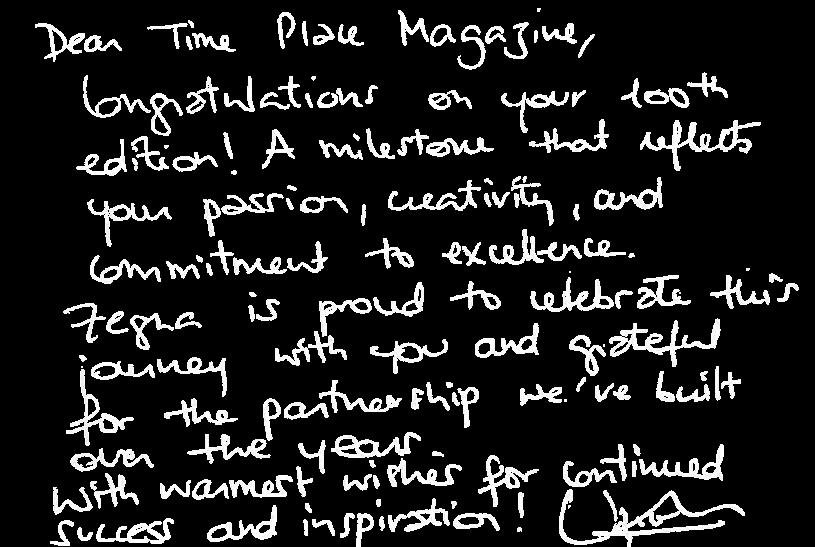 Dear Time Place Magazine,
Congratulations on your 100th
edition! A milestone that reflects
your passion, creativity, and
commitment to excellence.
Zegna is proud to celebrate this
journey with you and grateful
for the partnership we've built
over the years.
With warmest wishes for continued
success and inspiration!